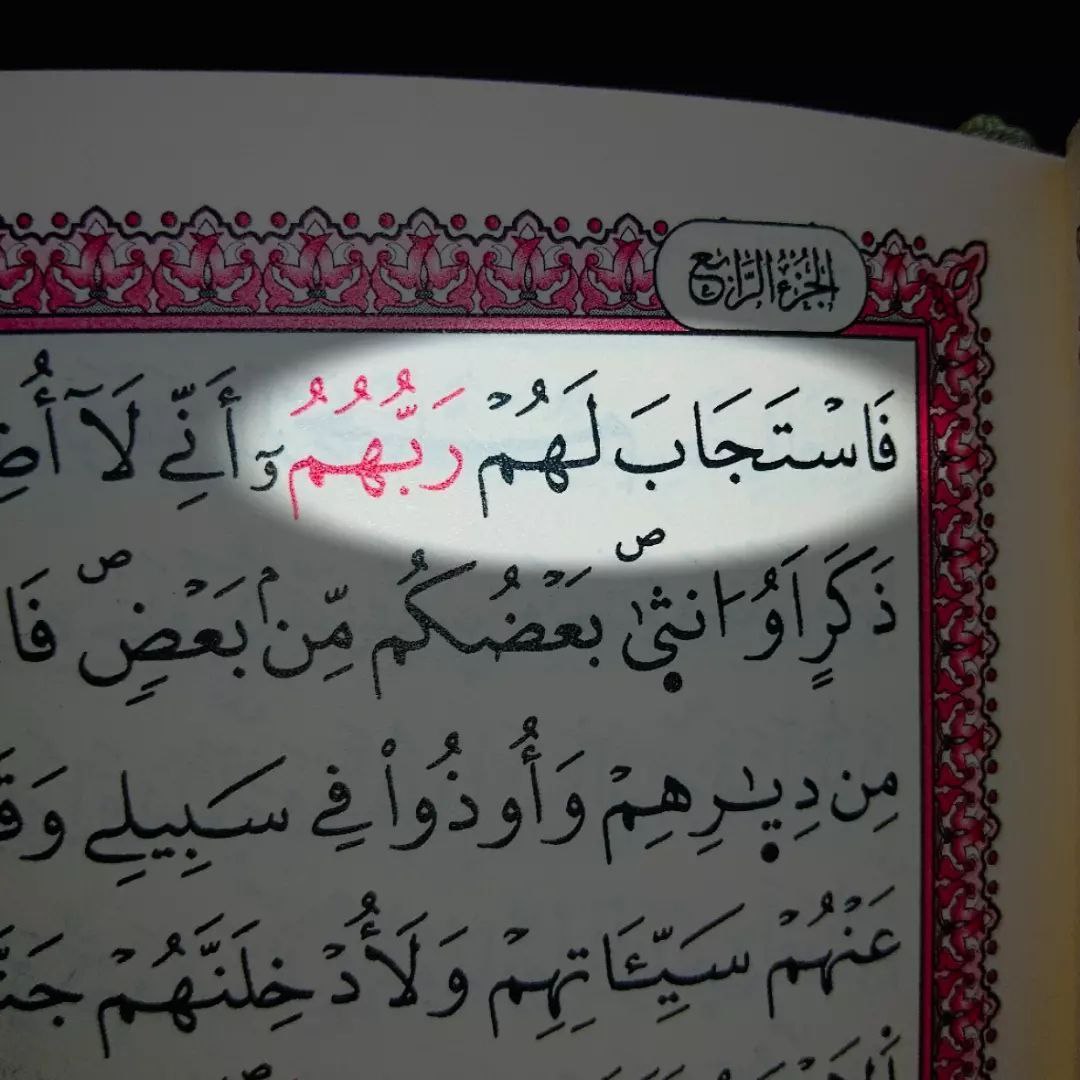 الجزء الرابع
فَاسْتَجَابَ لَهُمْ رَبُّهُمُۥٓ أَنِّے لَآ أُضِ
ذَكَرٍ اَوُ ا۟نث۪ىٰ بَعْضُكُم مِّنۢ بَعْضٖ فَا
مِن دِيٰ۪رِهِمْ وَأُوذُواْ فِے سَبِيلِے وَقَ
عَنْهُمْ سَيِّـَٔاتِهِمْ وَلَأُدْخِلَنَّهُمْ جَنَّ